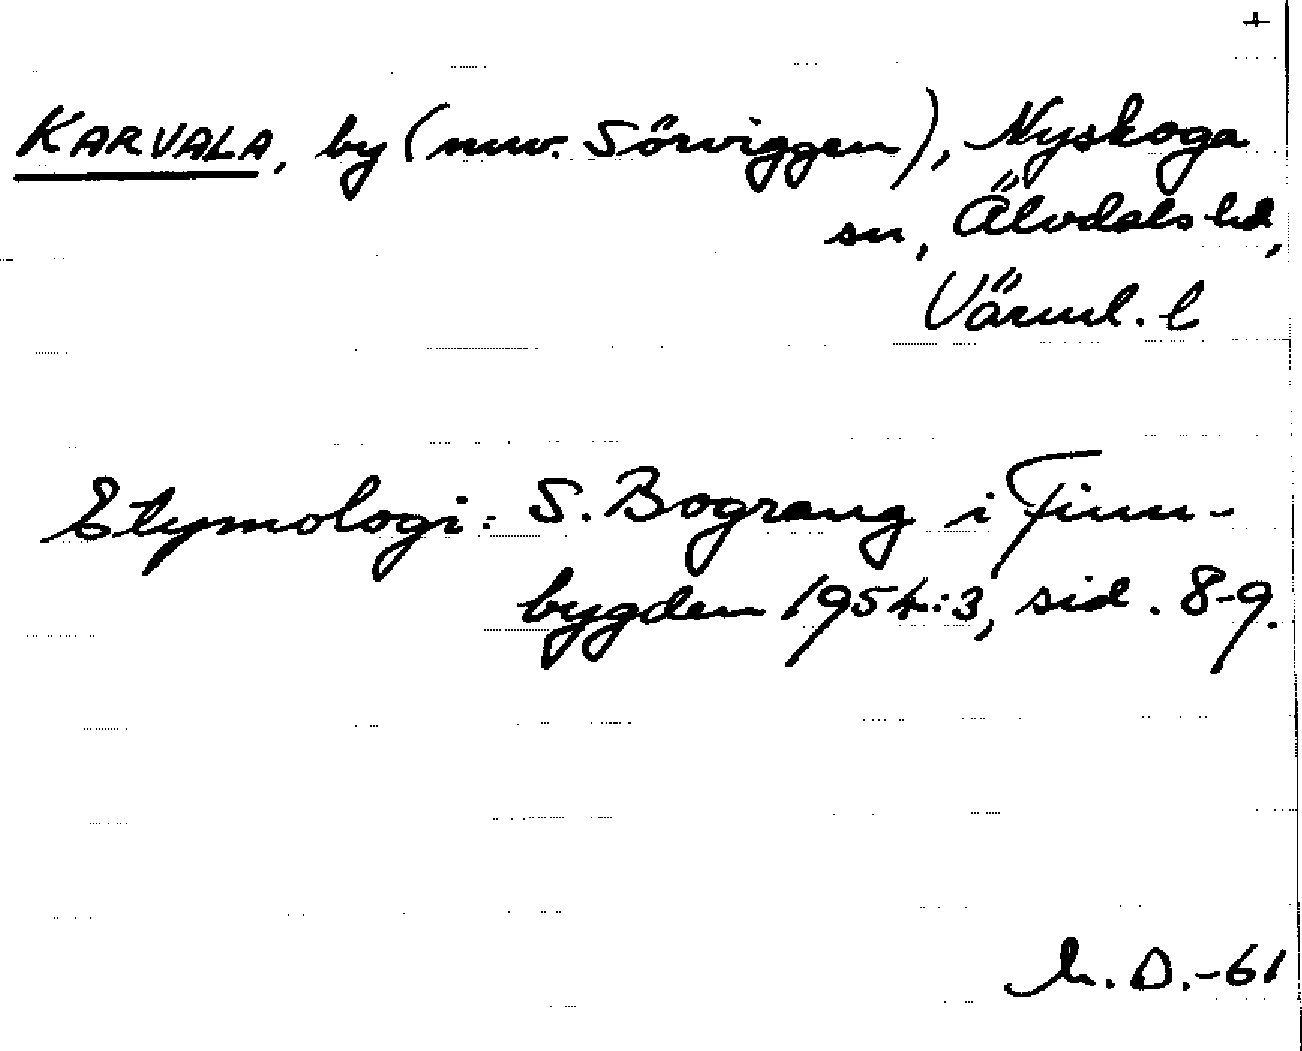 +
KARVALA, by (nuv. Sörviggen), Nyskoga
sn, Älvdals hd,
Värml. l
Etymologi: S. Bograng i Finn-
bygden 1954:3, sid. 8-9.
h. D. -61